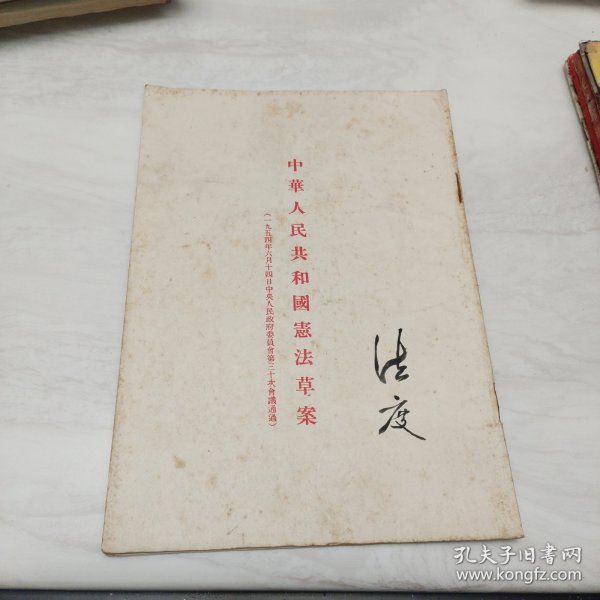 中華人民共和國憲法草案
(一九五四年六月十四日中央人民政府委員會第三十次會議通過)
法度
孔夫子旧书网
www.kongfz.com